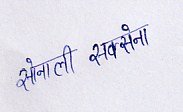 सोनाली सक्सेना